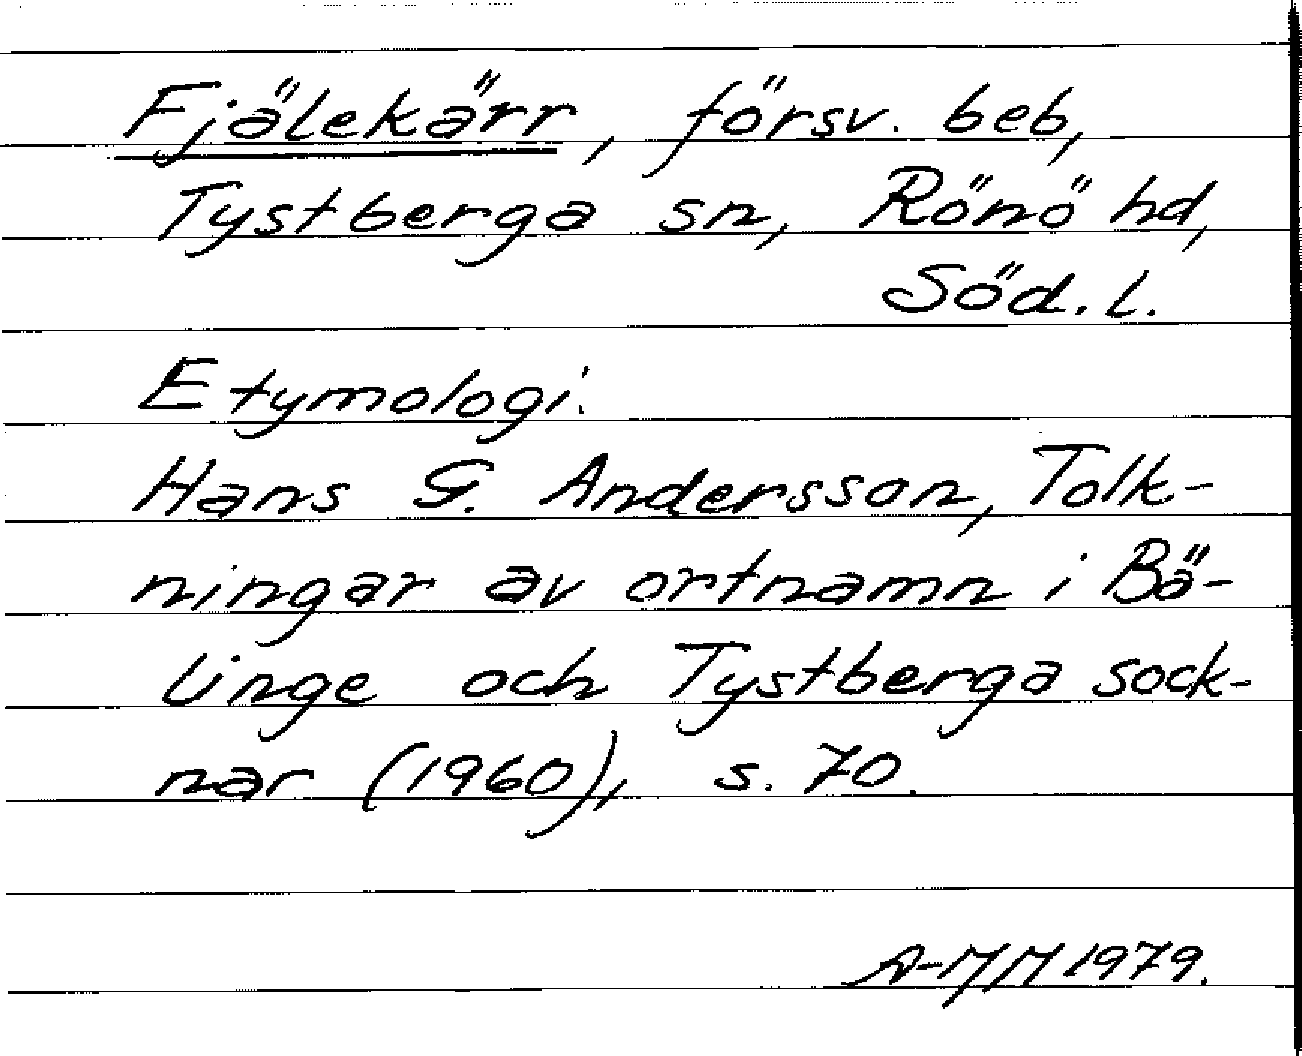 Fjälekärr, försv. beb,
Tystberga sn, Rönö hd,
Söd. l.
Etymologi:
Hans G. Andersson, Tolk-
ningar av ortnamn i Bä-
linge och Tystberga sock-
nar (1960), s. 70.
A-MM 1979.